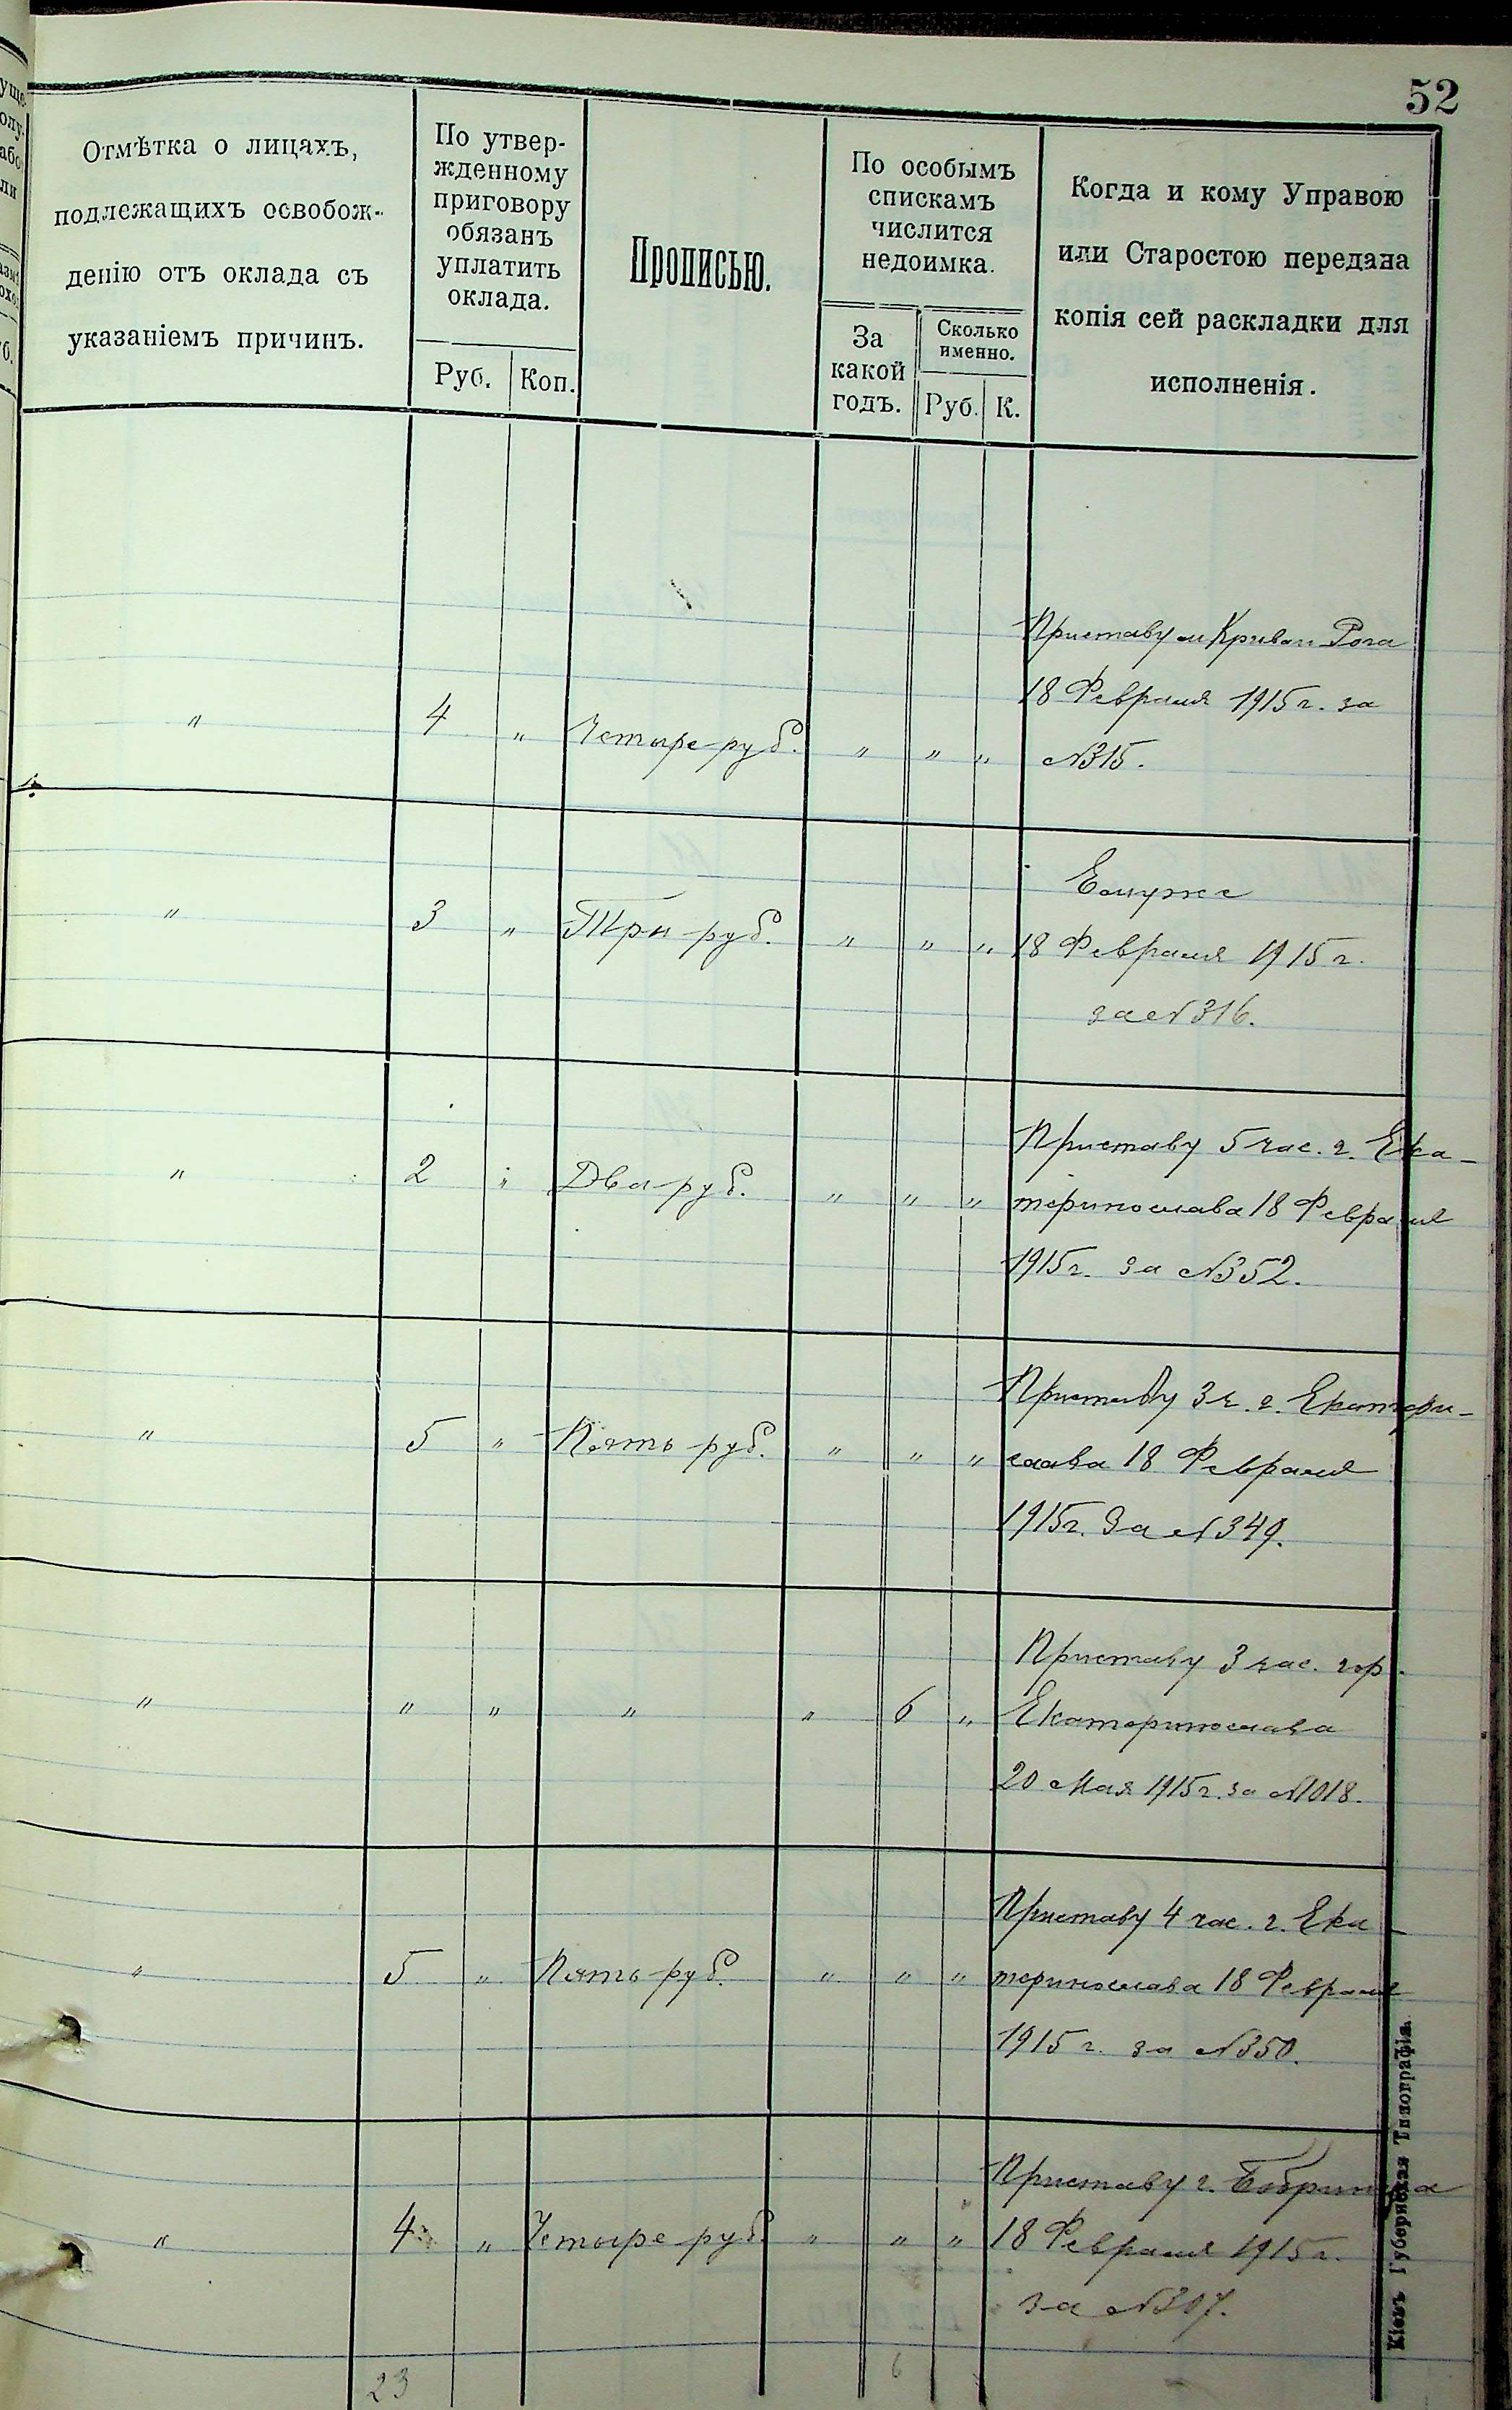 52
Отмѣтка о лицахъ,
подлежащихъ освобож-
денію отъ оклада съ
указаніемъ причинъ.
По утвер-
жденному
приговору
обязанъ
уплатить
оклада.
Руб. Коп.
Прописью.
По особымъ
спискамъ
числится
недоимка.
За
какой
годъ.
Сколько
именно.
Руб. К.
Когда и кому Управою
или Старостою передана
копія сей раскладки для
исполненія.
Приставу м Кривой Рога
18 Февраля 1915 г. за
" 4 " Четыре руб. " " " №315.
Ему же
" 3 " Три руб. " " " 18 Февраля 1915 г.
за №316.
Приставу 5 час. г. Ека-
" 2 " Два руб. " " " теринослава 18 Февраля
1915 г. за №352.
Приставу 3 ч. г. Екатери-
" 5 " Пять руб. " " " слава 18 Февраля
1915 г. За №349.
Приставу 3 час. гор.
" " " " " 6 " Екатеринослава
20 Мая 1915 г. за №1018.
Приставу 4 час. г. Ека-
" 5 " Пять руб. " " " теринослава 18 Февраля
1915 г. за №350.
Приставу г. Бобринца
" 4 " Четыре руб. " " " 18 Февраля 1915 г.
за №307.
23 6
Кіевъ Губернская Типографія.